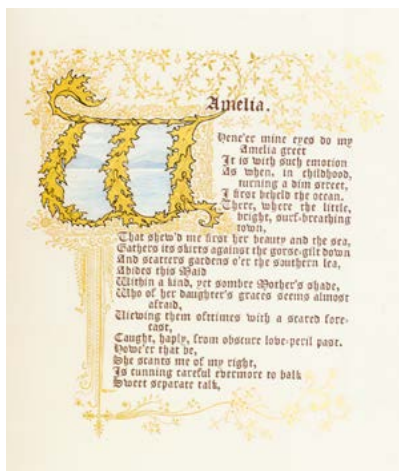 Amelia.
Whene'er mine eyes do my
Amelia greet
It is with such emotion
As when, in childhood,
turning a dim street,
I first beheld the ocean.
There, where the little,
bright, surf-breathing
town,
That shew'd me first her beauty and the sea,
Gathers its skirts against the gorse-gilt down
And scatters gardens o'er the southern lea,
Abides this Maid
Within a kind, yet sombre Mother's shade,
Who of her daughter's graces seems almost
afraid,
Viewing them ofttimes with a scared fore-
cast,
Caught, haply, from obscure love-peril past.
Howe'er that be,
She scants me of my right,
Is cunning careful evermore to balk
Sweet separate talk,